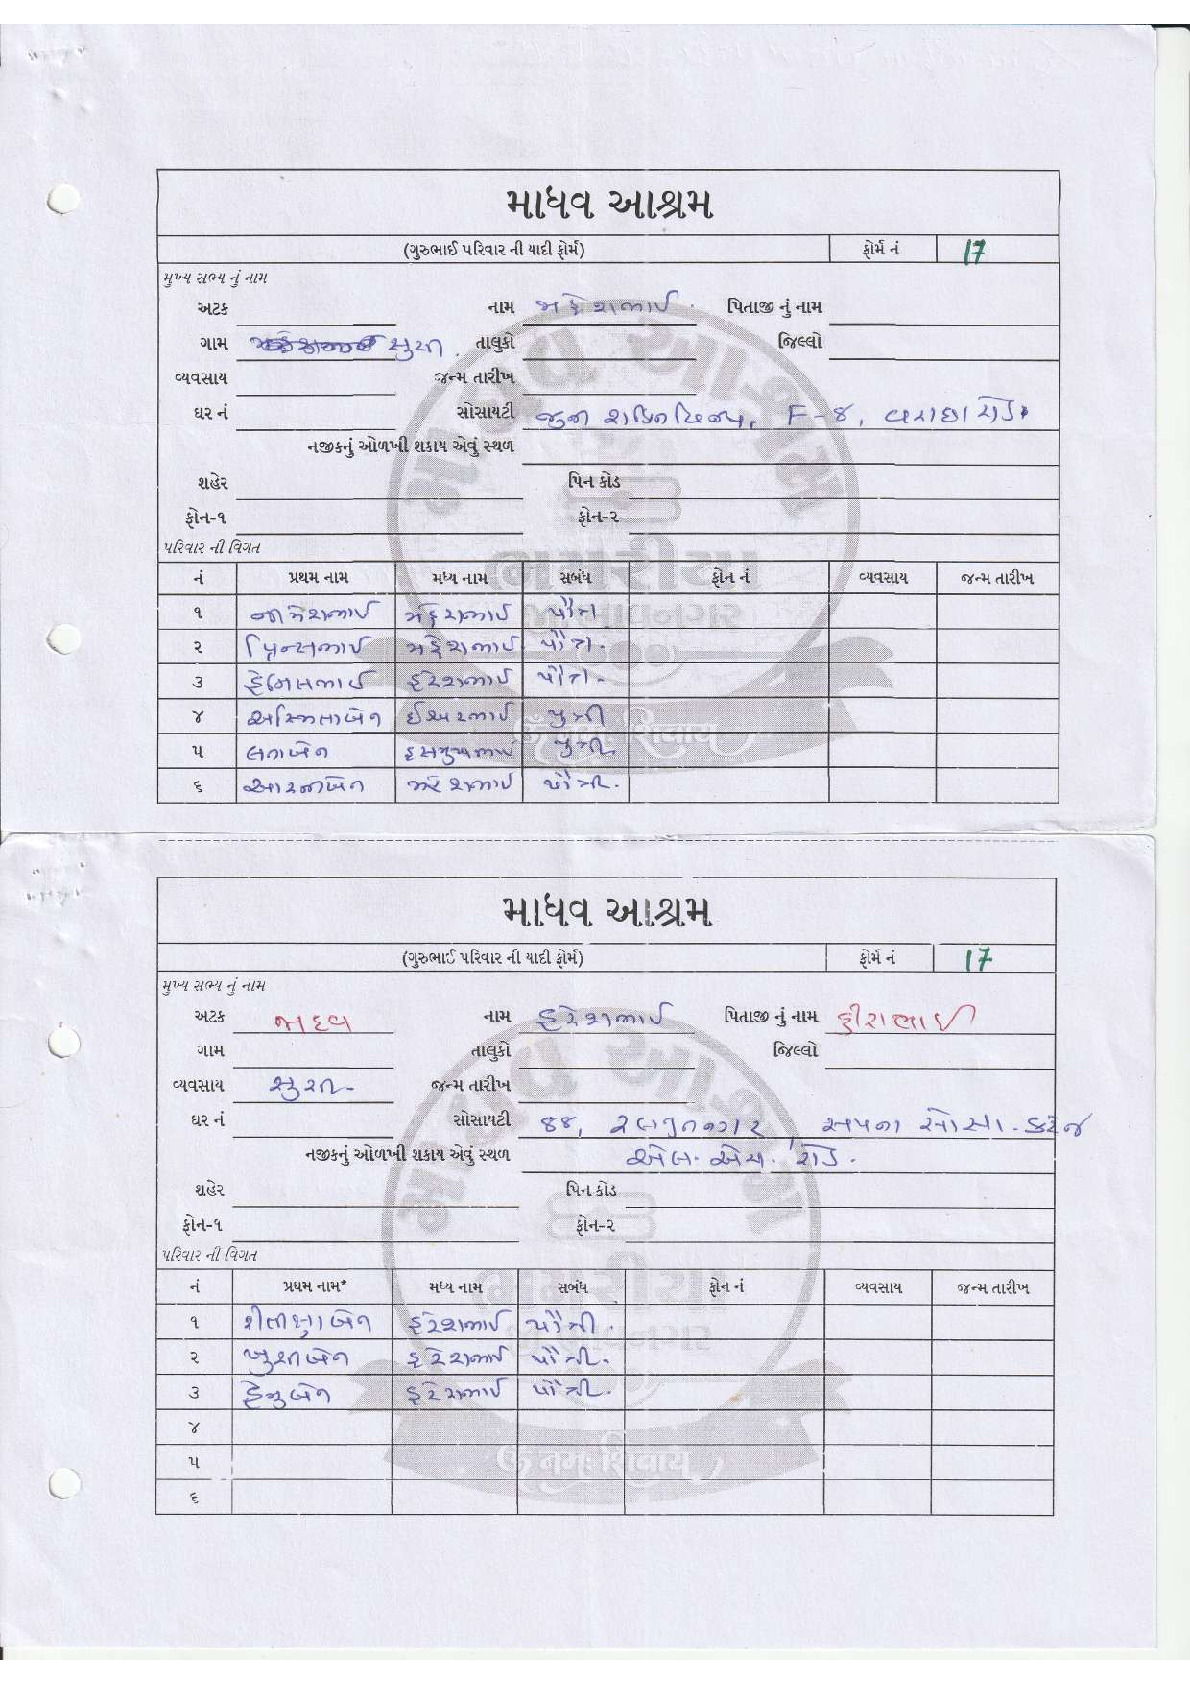 માધવ આશ્રમ
(ગુરુભાઈ પરિવાર ની યાદી ફોર્મ) ફોર્મ નં 17
મુખ્ય સભ્ય નું નામ
અટક નામ મહેશભાઈ પિતાજી નું નામ
ગામ તાલુકો જિલ્લો
વ્યવસાય જન્મ તારીખ
ઘર નં સોસાયટી જુના શક્તિવિજય, F-૪, વરાછા રોડ
નજીકનું ઓળખી શકાય એવું સ્થળ
શહેર પિન કોડ
ફોન-૧ ફોન-૨
પરિવાર ની વિગત
નં પ્રથમ નામ મધ્ય નામ સબંધ ફોન નં વ્યવસાય જન્મ તારીખ
૧ મહેશભાઈ પૌત્ર
૨ પ્રિન્સભાઈ મહેશભાઈ પૌત્ર.
૩ હેમિલભાઈ હરેશભાઈ પૌત્ર.
૪ અસ્મિતાબેન પુત્રી
૫ લતાબેન હસમુખભાઈ પુત્રી
૬ મહેશભાઈ પૌત્રી.
માધવ આશ્રમ
(ગુરુભાઈ પરિવાર ની યાદી ફોર્મ) ફોર્મ નં 17
મુખ્ય સભ્ય નું નામ
અટક જાદવ નામ હરેશભાઈ પિતાજી નું નામ હીરાભાઈ
ગામ તાલુકો જિલ્લો
વ્યવસાય સુરત- જન્મ તારીખ
ઘર નં સોસાયટી ૪૪, અપના સોસા.
નજીકનું ઓળખી શકાય એવું સ્થળ એલ. એચ. રોડ.
શહેર પિન કોડ
ફોન-૧ ફોન-૨
પરિવાર ની વિગત
નં પ્રથમ નામ* મધ્ય નામ સબંધ ફોન નં વ્યવસાય જન્મ તારીખ
૧ હરેશભાઈ પૌત્રી.
૨ ખુશીબેન હરેશભાઈ પૌત્રી.
૩ હેનુબેન હરેશભાઈ પૌત્રી.
૪
૫
૬